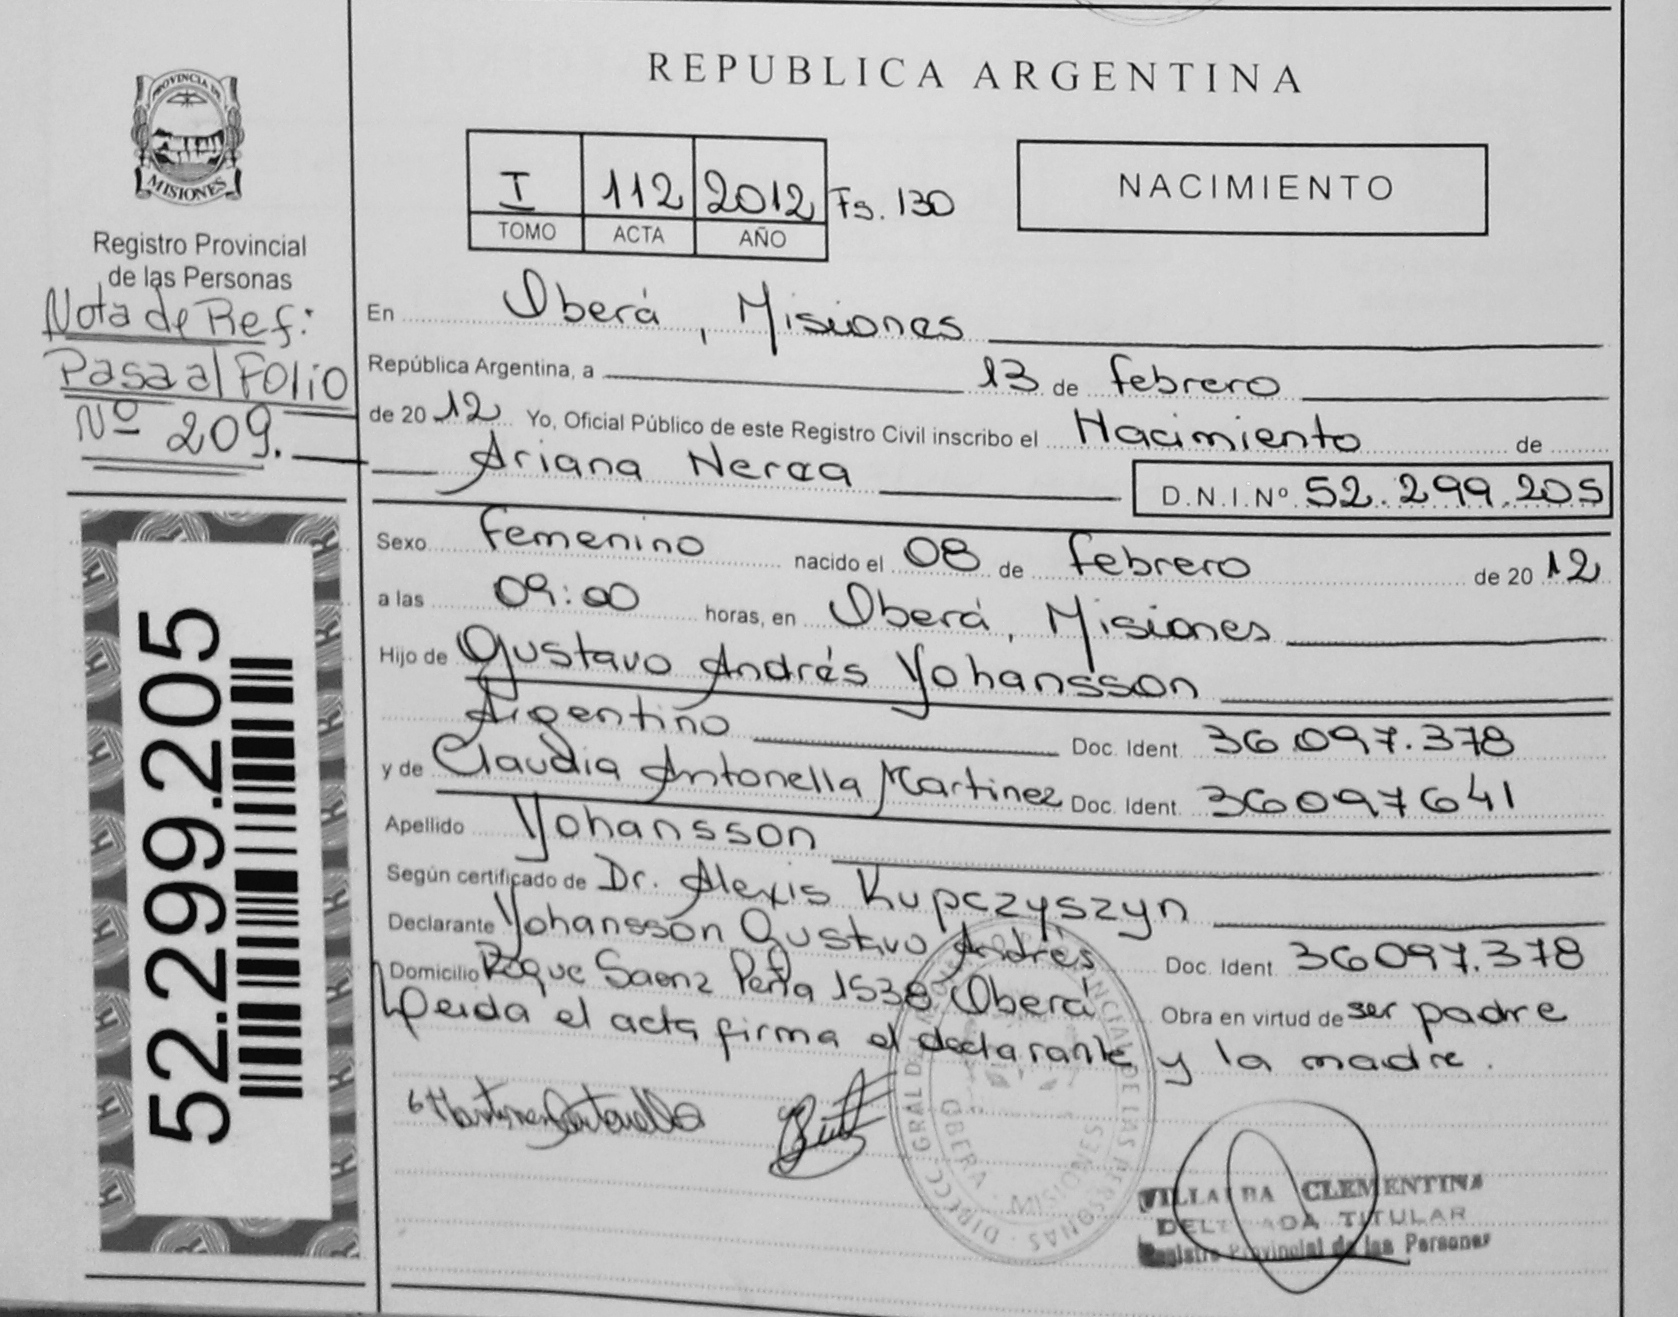 REPUBLICA ARGENTINA
PROVINCIA DE
MISIONES
Registro Provincial
de las Personas
Nota de Ref:
Pasa al Folio
Nº 209.
I 112 2012 Fs. 130
TOMO ACTA AÑO
NACIMIENTO
En Oberá, Misiones
República Argentina, a 13 de febrero
de 2012 Yo, Oficial Público de este Registro Civil inscribo el Nacimiento de
Ariana Nerea D.N.I.Nº 52.299.205
Sexo femenino nacido el 08 de febrero de 2012
a las 09:00 horas, en Oberá, Misiones
Hijo de Gustavo Andrés Yohansson
Argentino Doc. Ident. 36.097.378
y de Claudia Antonella Martinez Doc. Ident. 36097641
Apellido Yohansson
Según certificado de Dr. Alexis Kupczyszyn
Declarante Yohansson Gustavo Andrés Doc. Ident. 36097.378
Domicilio Roque Saenz Peña 1538 Oberá Obra en virtud de ser padre
Leida el acta firma el declarante y la madre.
52.299.205
OBERA - MISIONES
CLEMENTINA
TITULAR
Registro Provincial de las Personas